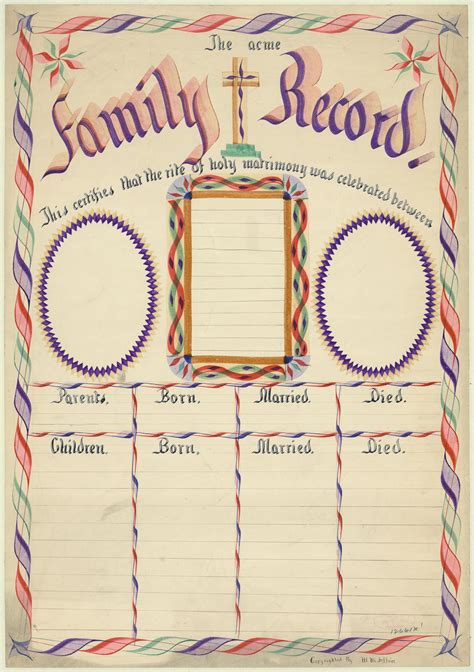 The acme
Family Record!
This certifies that the rite of holy matrimony was celebrated between
Parents. Born. Married. Died.
Children. Born. Married. Died.
Copyrighted By